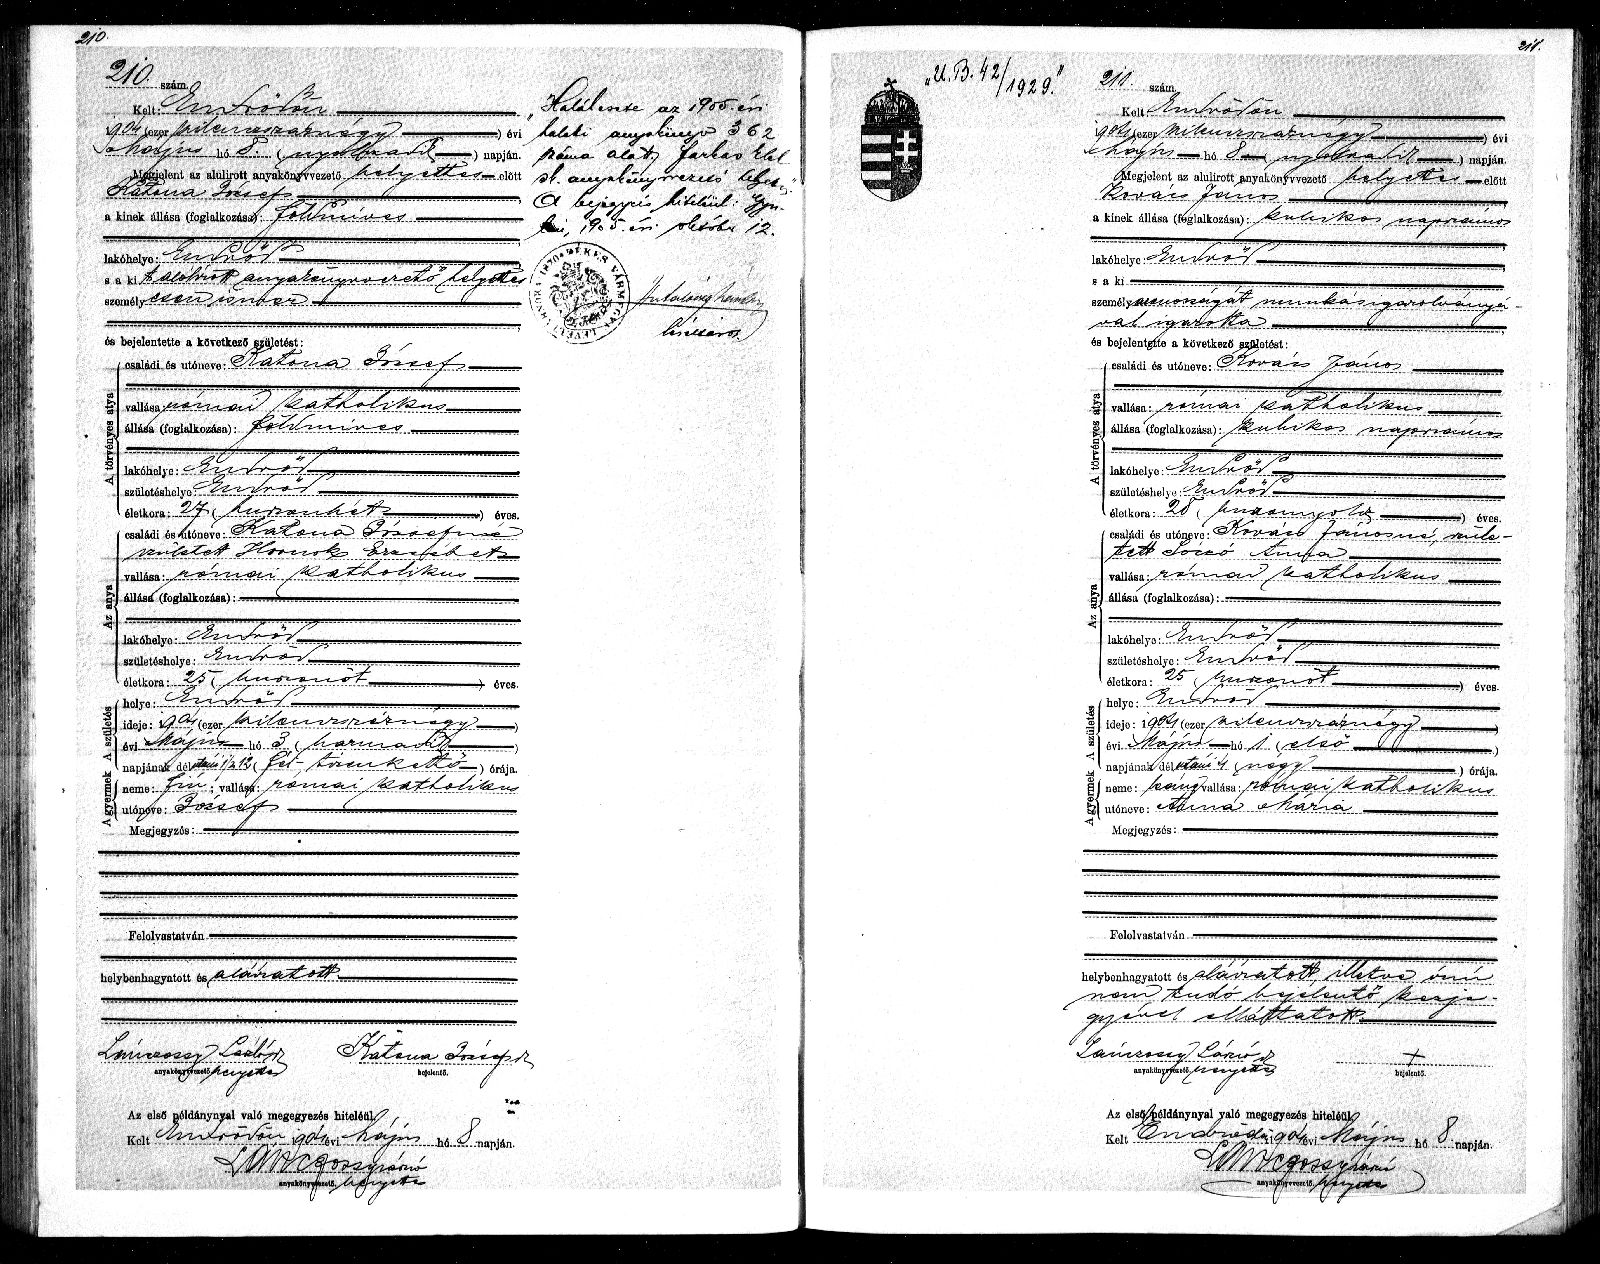 210.
210. szám.
Kelt: Endrődön
1904 (ezer kilenczszáznégy) évi
Május hó 8. (nyolczadik) napján.
Megjelent az alulirott anyakönyvvezető helyettes előtt
Katona József
a kinek állása (foglalkozása): földmíves
lakóhelye: Endrőd
s a ki t alólírott anyakönyvvezető helyettes
személyesen ismer
és bejelentette a következő születést:
A törvényes atya
családi és utóneve: Katona József
vallása: római katholikus
állása (foglalkozása): földmíves
lakóhelye: Endrőd
születéshelye: Endrőd
életkora: 27 (huszonhét) éves.
Az anya
családi és utóneve: Katona Józsefné
született Hornok Erzsébet
vallása: római katholikus
állása (foglalkozása):
lakóhelye: Endrőd
születéshelye: Endrőd
életkora: 25 (huszonöt) éves.
A születés
helye: Endrőd
ideje: 1904 (ezer kilenczszáznégy)
évi Május hó 3 (harmadik)
napjának délutáni 1/2 12 (fél tizenkettő) órája.
A gyermek
neme: fiú; vallása: római katholikus
utóneve: József
Megjegyzés:
Felolvastatván
helybenhagyatott és aláíratott
anyakönyvvezető helyettes
Katona József
bejelentő.
Az első példánynyal való megegyezés hiteléül
Kelt Endrődön 1904 évi Május hó 8 napján.
anyakönyvvezető. helyettes
"Halálesete az 1905. évi
halotti anyakönyv 362
száma alatt Farkas Elek
h. anyakönyvvezető helyettes"
A bejegyzés hiteléül: Gyu-
lán, 1905. évi október 12.
BÉKES VÁRMEGYE LEVÉLTÁRNOKA 1870
levéltáros
211.
"U.B. 42/1929."
211. szám.
Kelt Endrődön
1904 (ezer kilenczszáznégy) évi
Május hó 8 (nyolczadik) napján.
Megjelent az alulirott anyakönyvvezető helyettes előtt
Kovács János
a kinek állása (foglalkozása): kubikos napszámos
lakóhelye: Endrőd
s a ki
személyazonosságát munkásigazolványá-
val igazolta
és bejelentette a következő születést:
A törvényes atya
családi és utóneve: Kovács János
vallása: római katholikus
állása (foglalkozása): kubikos napszámos
lakóhelye: Endrőd
születéshelye: Endrőd
életkora: 28 (huszonnyolcz) éves.
Az anya
családi és utóneve: Kovács Jánosné, szüle-
tett Sóczó Anna
vallása: római katholikus
állása (foglalkozása):
lakóhelye: Endrőd
születéshelye: Endrőd
életkora: 25 (huszonöt) éves.
A születés
helye: Endrőd
ideje: 1904 (ezer kilenczszáznégy)
évi Május hó 1 (első)
napjának délutáni 4 (négy) órája.
A gyermek
neme: leány vallása: római katholikus
utóneve: Anna Mária
Megjegyzés:
Felolvastatván
helybenhagyatott és aláíratott, illetve írni
nem tudó bejelentő kézje-
gyével elláttatott.
anyakönyvvezető helyettes
+
bejelentő.
Az első példánynyal való megegyezés hiteléül
Kelt Endrődön 1904 évi Május hó 8 napján.
anyakönyvvezető. helyettes